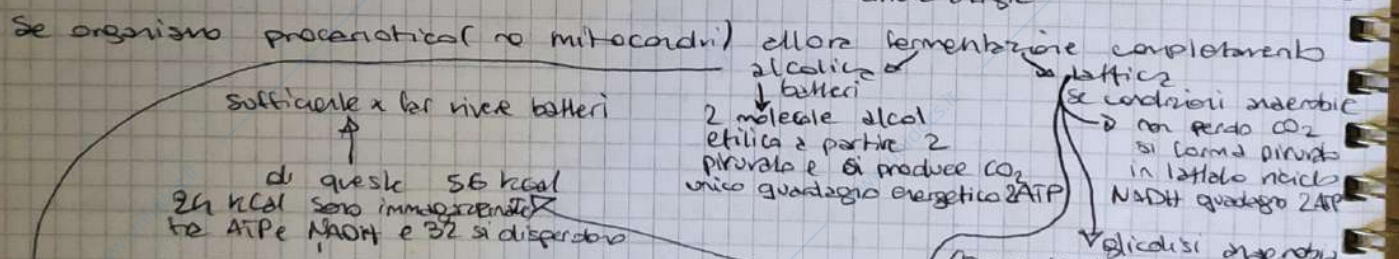 Se organismo procariotico (no mitocondri) allora fermentazione completamente
alcolica
lattica
batteri
2 molecole alcol
etilica a partire 2
piruvato e si produce CO2
unico guadagno energetico 2ATP
se condizioni anaerobie
non perdo CO2
si forma piruvato
in lattato riciclo
NADH guadagno 2ATP
glicolisi anaerobia
sufficiente x far vivere batteri
di queste 56 kcal
24 kcal sono immagazzinate
tra ATP e NADH e 32 si disperdono